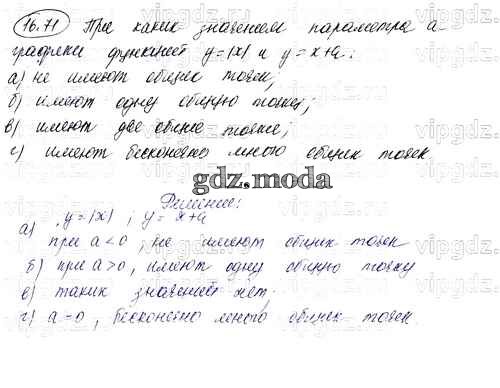 16.71 При каких значениях параметра а
графики функций y=|x| и y=x+a:
а) не имеют общих точек;
б) имеют одну общую точку;
в) имеют две общие точки;
г) имеют бесконечно много общих точек.
gdz.moda
Решение:
а) y=|x| ; y=x+a
при a<0 не имеют общих точек
б) при a>0, имеют одну общую точку
в) таких значений нет.
г) a=0, бесконечно много общих точек.
vipgdz.ru